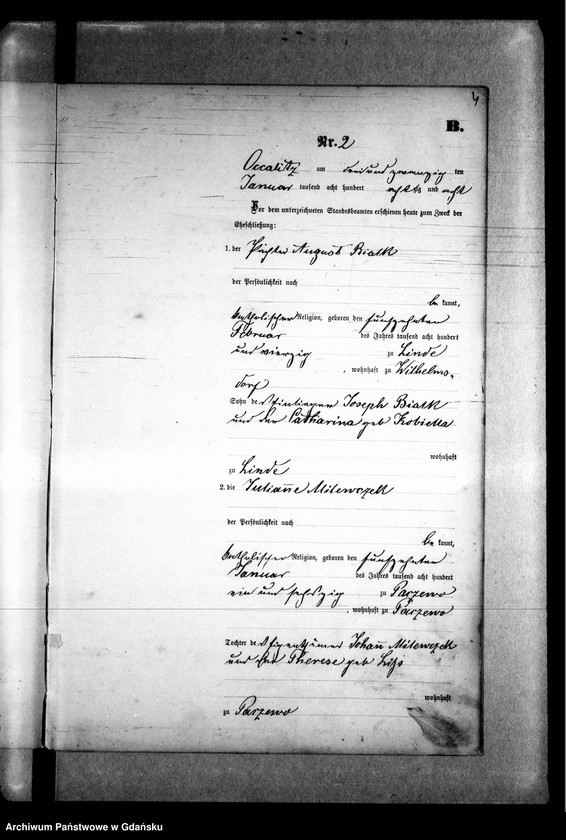 4
B.
Nr. 2
Occalitz am drei und zwanzig ten
Januar tausend acht hundert acht zig und acht
Vor dem unterzeichneten Standesbeamten erschienen heute zum Zweck der
Eheschließung:
1. der Pächter August Bialk
der Persönlichkeit nach
be kannt,
katholischer Religion, geboren den fünfzehnten
Februar des Jahres tausend acht hundert
und vierzig zu Linde
, wohnhaft zu Wilhelms-
dorf
Sohn des Joseph Bialk
und der Catharina geb Kobiella
wohnhaft
zu Linde
2. die Julianne Milewczek
der Persönlichkeit nach
be kannt,
katholischer Religion, geboren den fünfzehnten
Januar des Jahres tausend acht hundert
ein und sechszig zu Parzewo
, wohnhaft zu Parzewo
Tochter des Eigenthümer Johann Milewczek
und der Therese geb
wohnhaft
zu Parzewo
Archiwum Państwowe w Gdańsku